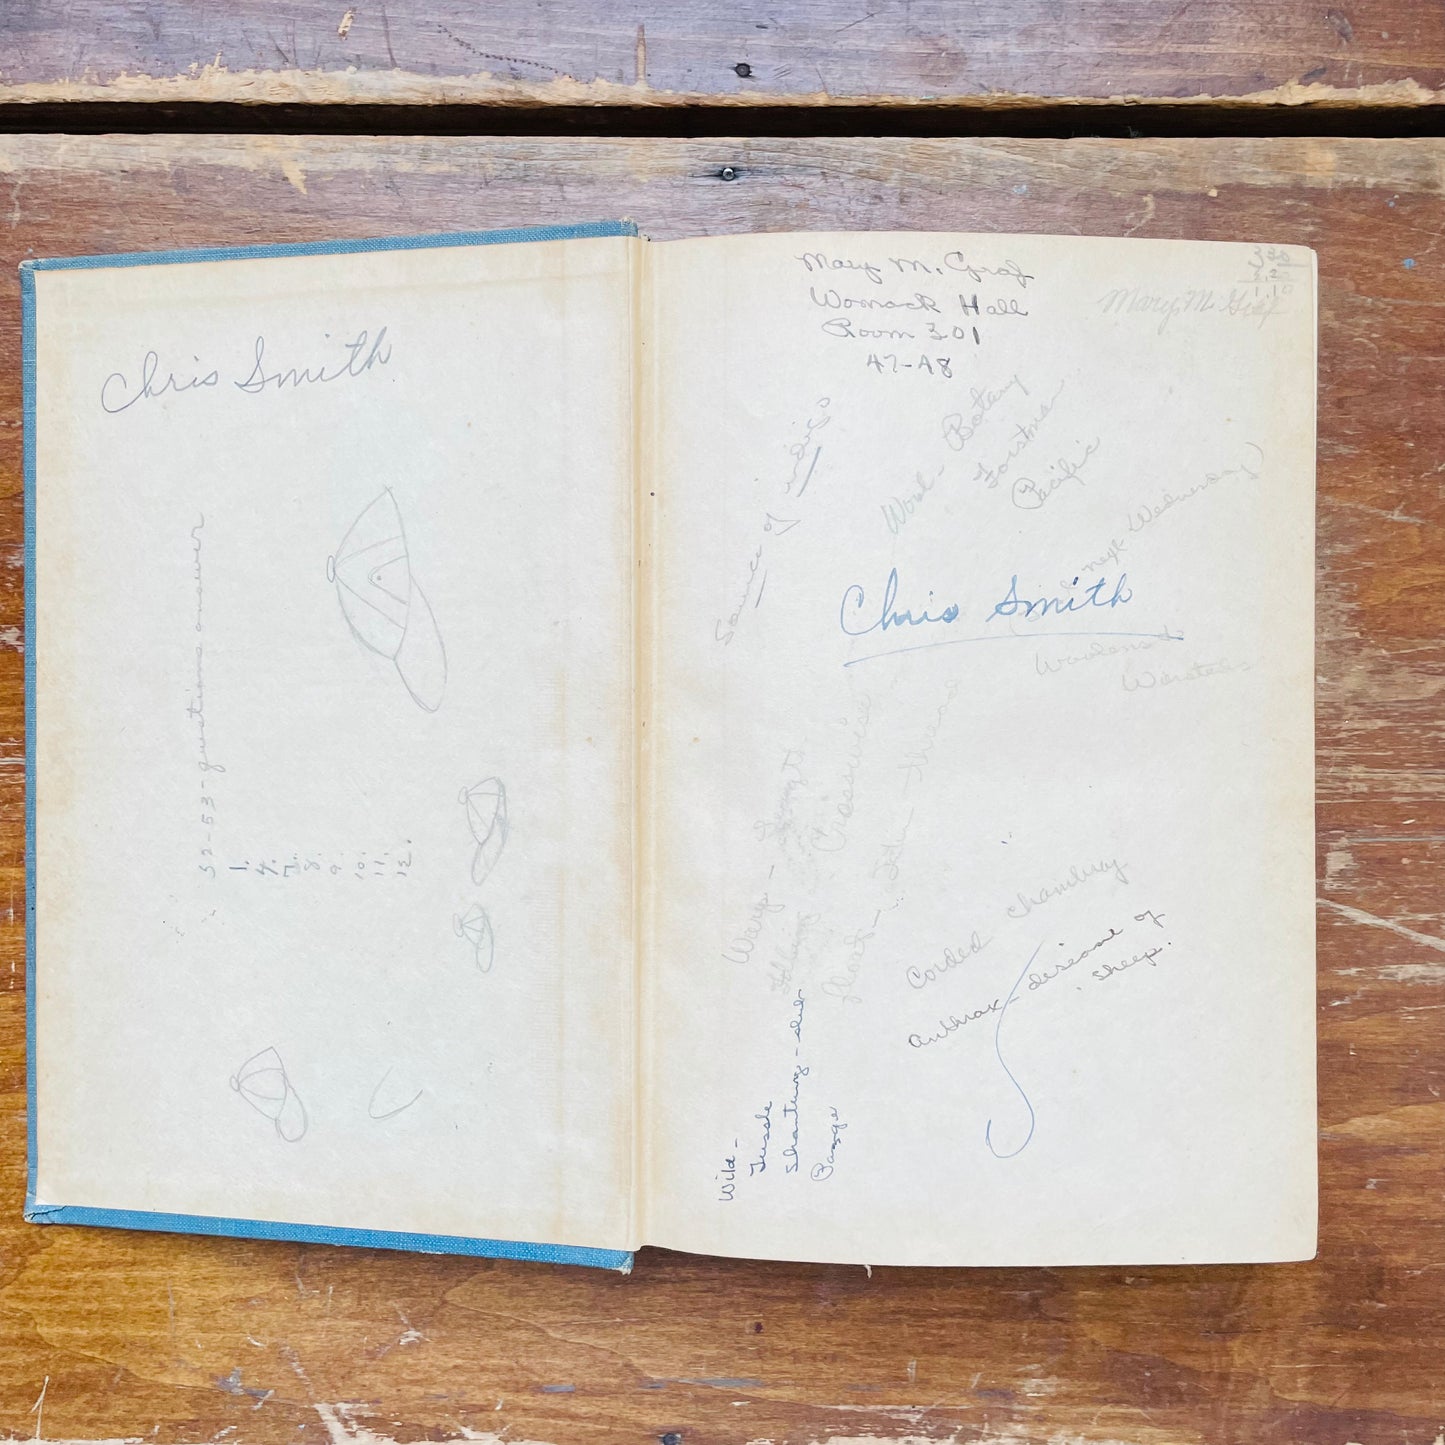 Chris Smith
52-53-questions answer
1.
4.
7.
8.
9.
10.
11.
12.
Mary M. Graf
Womack Hall
Room 301
47-48
Mary M. Graf
Source of indigo
Wool - Botany
Forstman
Pacific
next Wednesday)
Chris Smith
Woolens &
Worsteds
Warp - Length
Filling - Crosswise
float -
Corded chambray
Anthrax - disease of
sheep.
Wild -
Tussle
Shantung -
Ponge